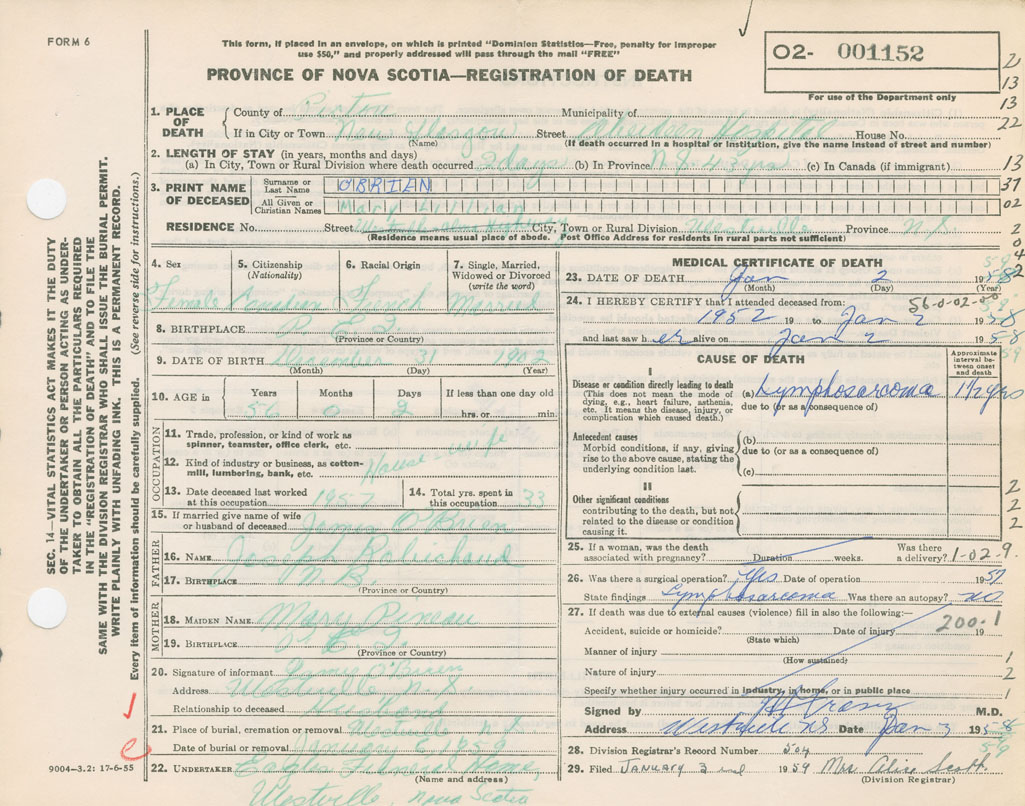 FORM 6
This form, if placed in an envelope, on which is printed "Dominion Statistics—Free, penalty for improper
use $50," and properly addressed will pass through the mail "FREE"
PROVINCE OF NOVA SCOTIA—REGISTRATION OF DEATH
O2- 001152
For use of the Department only
2
13
13
22
13
37
02
2
0
4
2
SEC. 14—VITAL STATISTICS ACT MAKES IT THE DUTY
OF THE UNDERTAKER OR PERSON ACTING AS UNDER-
TAKER TO OBTAIN ALL THE PARTICULARS REQUIRED
IN THE "REGISTRATION OF DEATH" AND TO FILE THE
SAME WITH THE DIVISION REGISTRAR WHO SHALL ISSUE THE BURIAL PERMIT.
WRITE PLAINLY WITH UNFADING INK. THIS IS A PERMANENT RECORD.
Every item of information should be carefully supplied. (See reverse side for instructions.)
1. PLACE OF DEATH
County of Pictou Municipality of
If in City or Town New Glasgow Street Aberdeen Hospital House No.
(Name) (If death occurred in a hospital or institution, give the name instead of street and number)
2. LENGTH OF STAY (in years, months and days)
(a) In City, Town or Rural Division where death occurred 2 days (b) In Province N.S. 43 yrs (c) In Canada (if immigrant)
3. PRINT NAME OF DECEASED
Surname or Last Name O'BRIAN
All Given or Christian Names Mary Lillian
RESIDENCE No. Street Highway City, Town or Rural Division Westville Province N.S.
(Residence means usual place of abode. Post Office Address for residents in rural parts not sufficient)
4. Sex 5. Citizenship (Nationality) 6. Racial Origin 7. Single, Married, Widowed or Divorced (write the word)
Female Canadian French Married
8. BIRTHPLACE P E I
(Province or Country)
9. DATE OF BIRTH December 31 1902
(Month) (Day) (Year)
10. AGE in Years Months Days If less than one day
56 0 2 hrs. or min.
OCCUPATION
11. Trade, profession, or kind of work as
spinner, teamster, office clerk, etc.
House-wife
12. Kind of industry or business, as cotton-
mill, lumbering, bank, etc.
13. Date deceased last worked
at this occupation 1957
14. Total yrs. spent in
this occupation 33
15. If married give name of wife
or husband of deceased James O'Brien
FATHER
16. NAME Joseph Robichaud
17. BIRTHPLACE N.B.
(Province or Country)
MOTHER
18. MAIDEN NAME Mary Pineau
19. BIRTHPLACE P E I
(Province or Country)
20. Signature of informant James O'Brien
Address Westville N.S.
Relationship to deceased Husband
21. Place of burial, cremation or removal Westville N.S.
Date of burial or removal January 1959
22. UNDERTAKER Eagles Funeral Home,
(Name and address)
Westville, Nova Scotia
9004—3.2: 17-6-55
MEDICAL CERTIFICATE OF DEATH
23. DATE OF DEATH Jan 2 1958 59
(Month) (Day) (Year)
24. I HEREBY CERTIFY that I attended deceased from:
56-0-02-00
1952 19 to Jan 2 1958
and last saw her alive on Jan 2 1958
59
CAUSE OF DEATH
Approximate interval between onset and death
I
Disease or condition directly leading to death
(This does not mean the mode of
dying, e.g., heart failure, asthenia,
etc. It means the disease, injury, or
complication which caused death.)
(a) Lymphosarcoma 1 1/2 yrs
due to (or as a consequence of)
Antecedent causes
Morbid conditions, if any, giving
rise to the above cause, stating the
underlying condition last.
(b)
due to (or as a consequence of)
(c)
II
Other significant conditions
contributing to the death, but not
related to the disease or condition
causing it.
2
2
2
25. If a woman, was the death
associated with pregnancy? Duration weeks. Was there
a delivery? 1-02-9.
26. Was there a surgical operation? Yes Date of operation 1957
State findings Lymphosarcoma Was there an autopsy? no
27. If death was due to external causes (violence) fill in also the following:—
200-1
Accident, suicide or homicide? Date of injury 19
(State which)
Manner of injury 1
(How sustained)
Nature of injury 2
Specify whether injury occurred in industry, in home, or in public place 1
Signed by M.D.
Address Westville NS Date Jan 3 1958
59
28. Division Registrar's Record Number 504
29. Filed JANUARY 3 1959 Mrs. Alice Scott.
(Division Registrar)